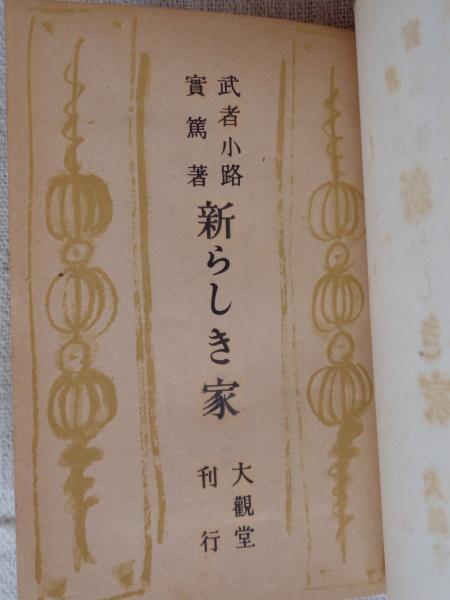 武者小路
實篤著
新らしき家
大觀堂
刊行